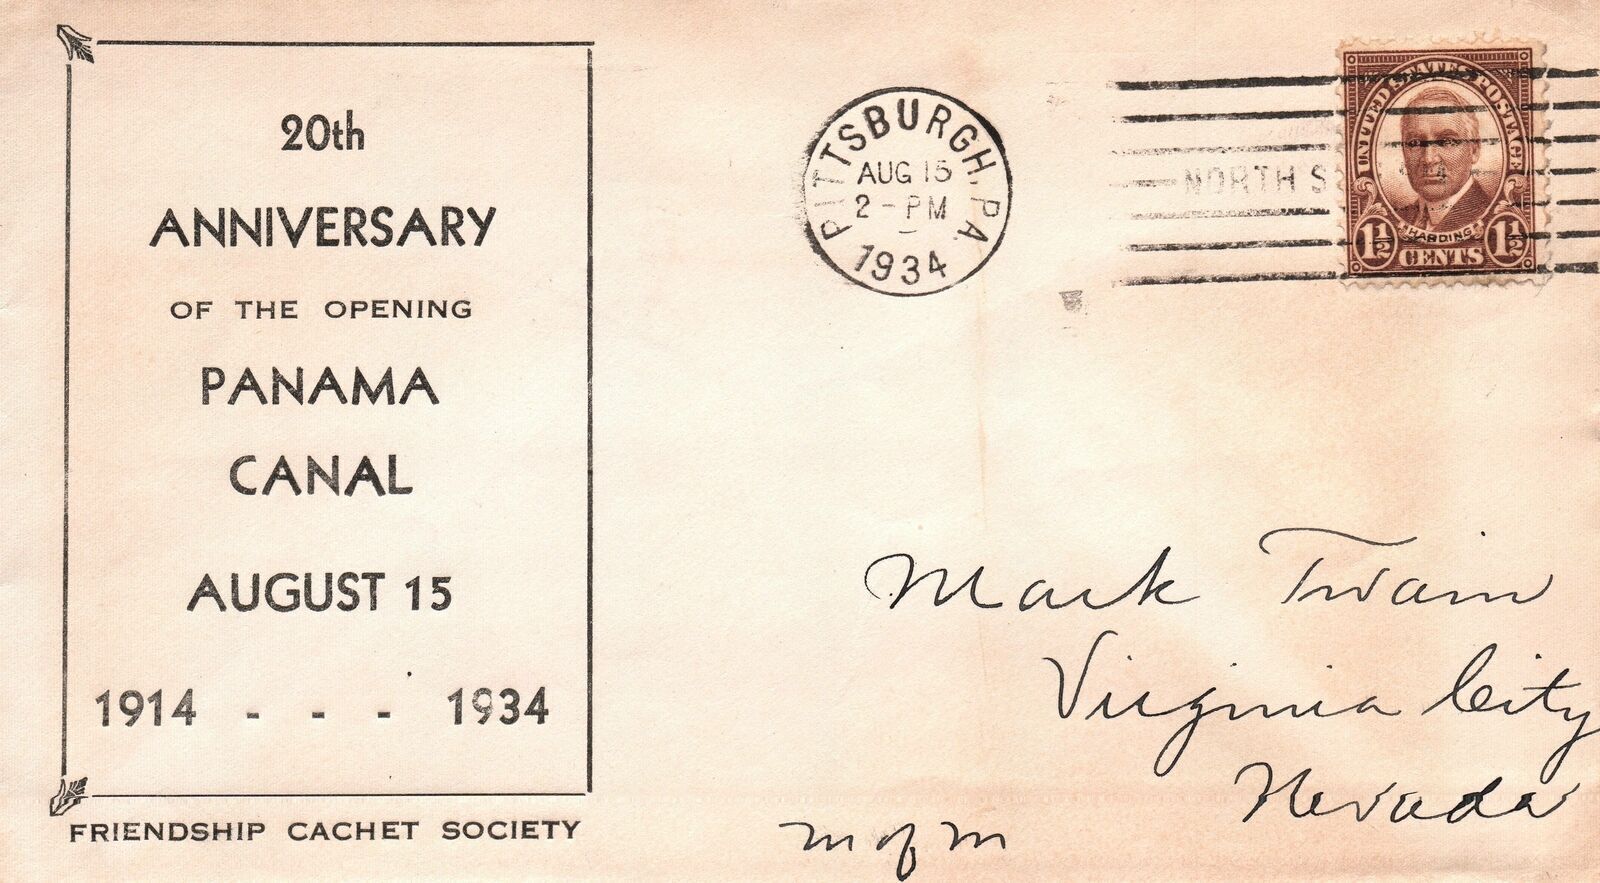 20th
ANNIVERSARY
OF THE OPENING
PANAMA
CANAL
AUGUST 15
1914 - - - 1934
FRIENDSHIP CACHET SOCIETY
PITTSBURGH, PA.
AUG 15
2 - PM
1934
NORTH S
UNITED STATES POSTAGE
HARDING
1½ CENTS 1½
Mark Twain
Virginia City
Nevada
m of m